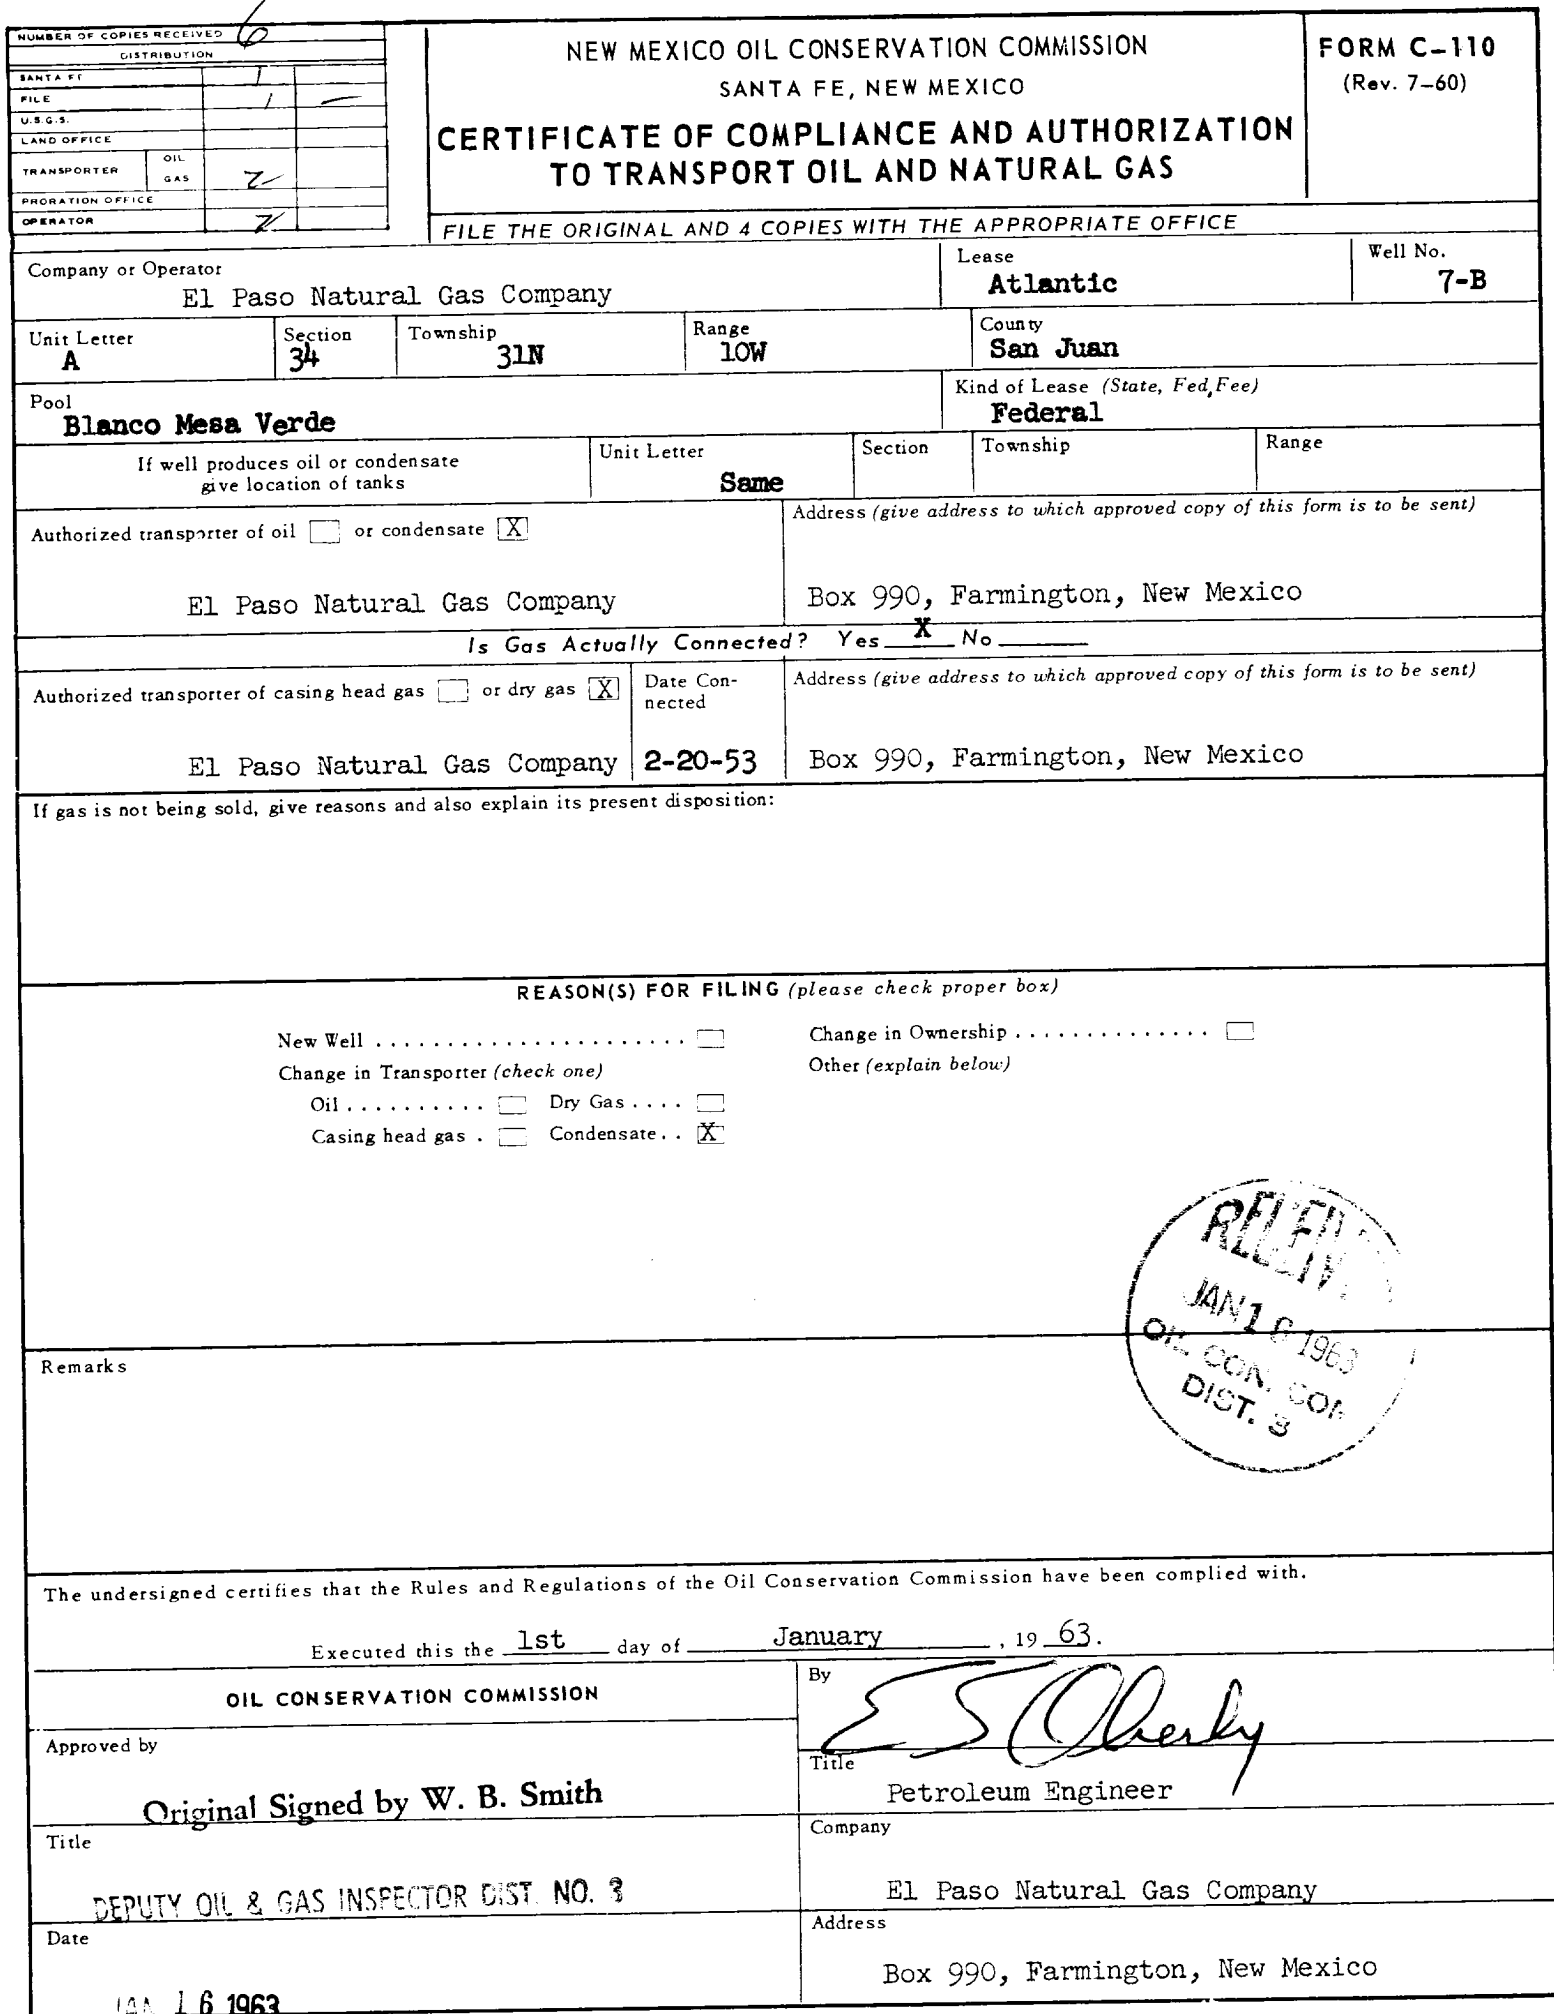 NUMBER OF COPIES RECEIVED 6
DISTRIBUTION
SANTA FE 1
FILE 1 —
U.S.G.S.
LAND OFFICE
TRANSPORTER OIL
GAS 2
PRORATION OFFICE
OPERATOR 2
NEW MEXICO OIL CONSERVATION COMMISSION
SANTA FE, NEW MEXICO
CERTIFICATE OF COMPLIANCE AND AUTHORIZATION
TO TRANSPORT OIL AND NATURAL GAS
FILE THE ORIGINAL AND 4 COPIES WITH THE APPROPRIATE OFFICE
FORM C-110
(Rev. 7-60)
Company or Operator
El Paso Natural Gas Company
Lease
Atlantic
Well No.
7-B
Unit Letter
A
Section
34
Township
31N
Range
10W
County
San Juan
Pool
Blanco Mesa Verde
Kind of Lease (State, Fed, Fee)
Federal
If well produces oil or condensate
give location of tanks
Unit Letter
Same
Section
Township
Range
Authorized transporter of oil or condensate X
El Paso Natural Gas Company
Address (give address to which approved copy of this form is to be sent)
Box 990, Farmington, New Mexico
Is Gas Actually Connected? Yes X No
Authorized transporter of casing head gas or dry gas X
El Paso Natural Gas Company
Date Con-
nected
2-20-53
Address (give address to which approved copy of this form is to be sent)
Box 990, Farmington, New Mexico
If gas is not being sold, give reasons and also explain its present disposition:
REASON(S) FOR FILING (please check proper box)
New Well . . . . . . . . . . . . . . . . . . . . . .
Change in Ownership . . . . . . . . . . . . . .
Change in Transporter (check one)
Other (explain below)
Oil . . . . . . . . . . Dry Gas . . . .
Casing head gas . Condensate . . X
JAN 16 1963
OIL CON. COM
DIST. 3
Remarks
The undersigned certifies that the Rules and Regulations of the Oil Conservation Commission have been complied with.
Executed this the 1st day of January , 19 63.
OIL CONSERVATION COMMISSION
Approved by
Original Signed by W. B. Smith
Title
DEPUTY OIL & GAS INSPECTOR DIST. NO. 3
Date
JAN 16 1963
By
E S Oberly
Title
Petroleum Engineer
Company
El Paso Natural Gas Company
Address
Box 990, Farmington, New Mexico